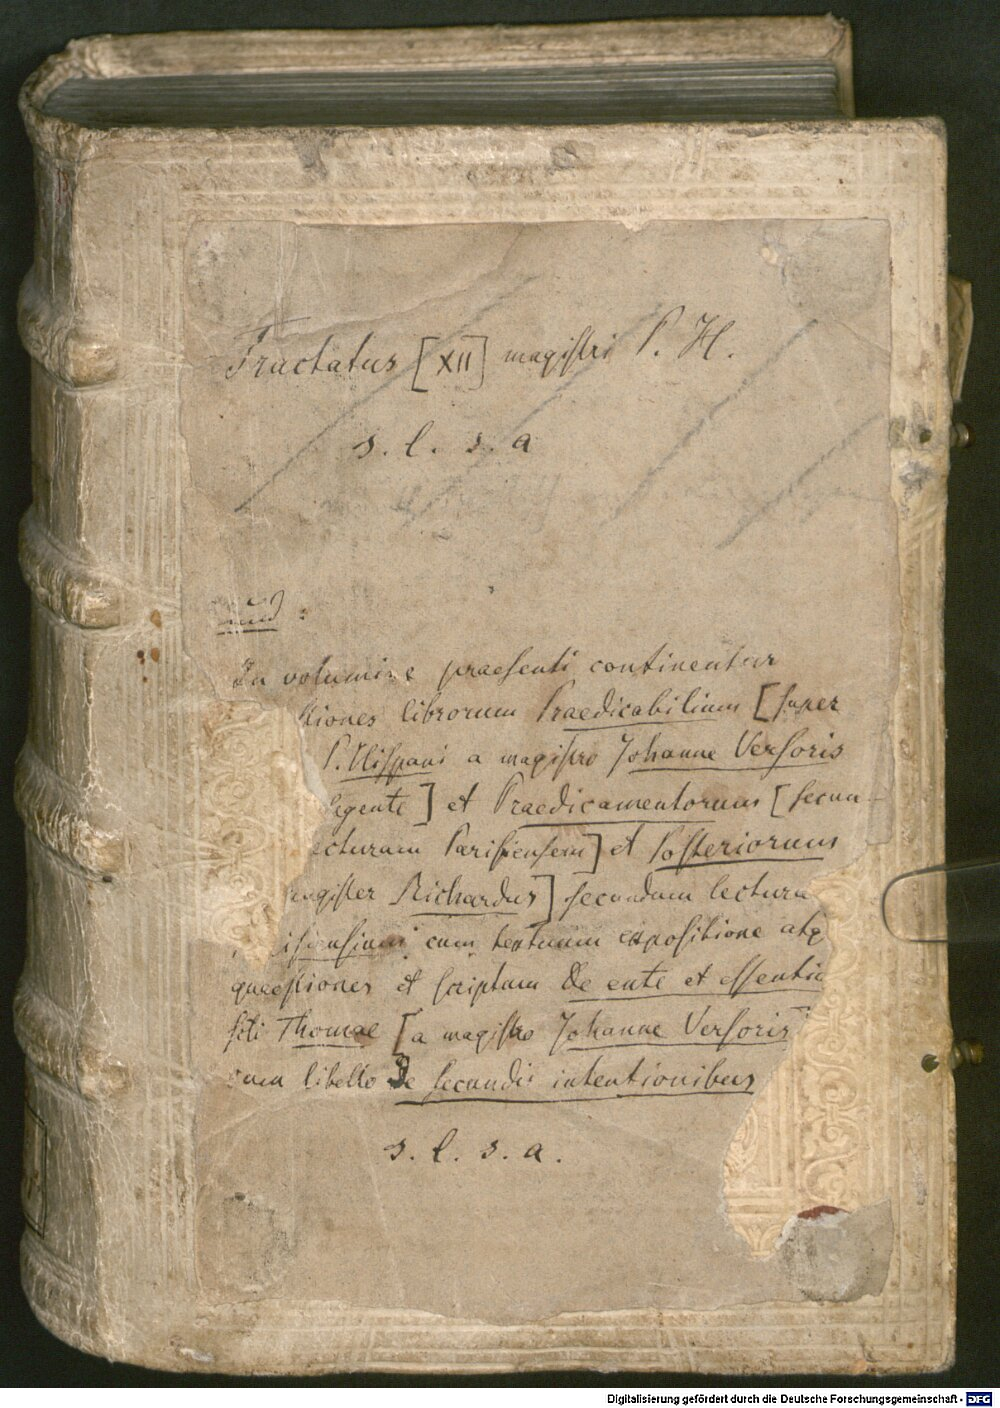 Tractatus [XII] magistri P. H.
s. l. s. a
In volumine praesenti continentur
tiones librorum Praedicabilium [super
P. Hispani a magistro Johanne Versoris
legente] et Praedicamentorum [secun-
ecturam Parisiensem] et Posteriorum
magister Richardus] secundum lectura
cum textuum expositione atq
quaestiones et scriptum De ente et essentia
sti Thomae [a magistro Johanne Versoris]
cum libello De secundis intentionibus
s. l. s. a.
Digitalisierung gefördert durch die Deutsche Forschungsgemeinschaft - DFG